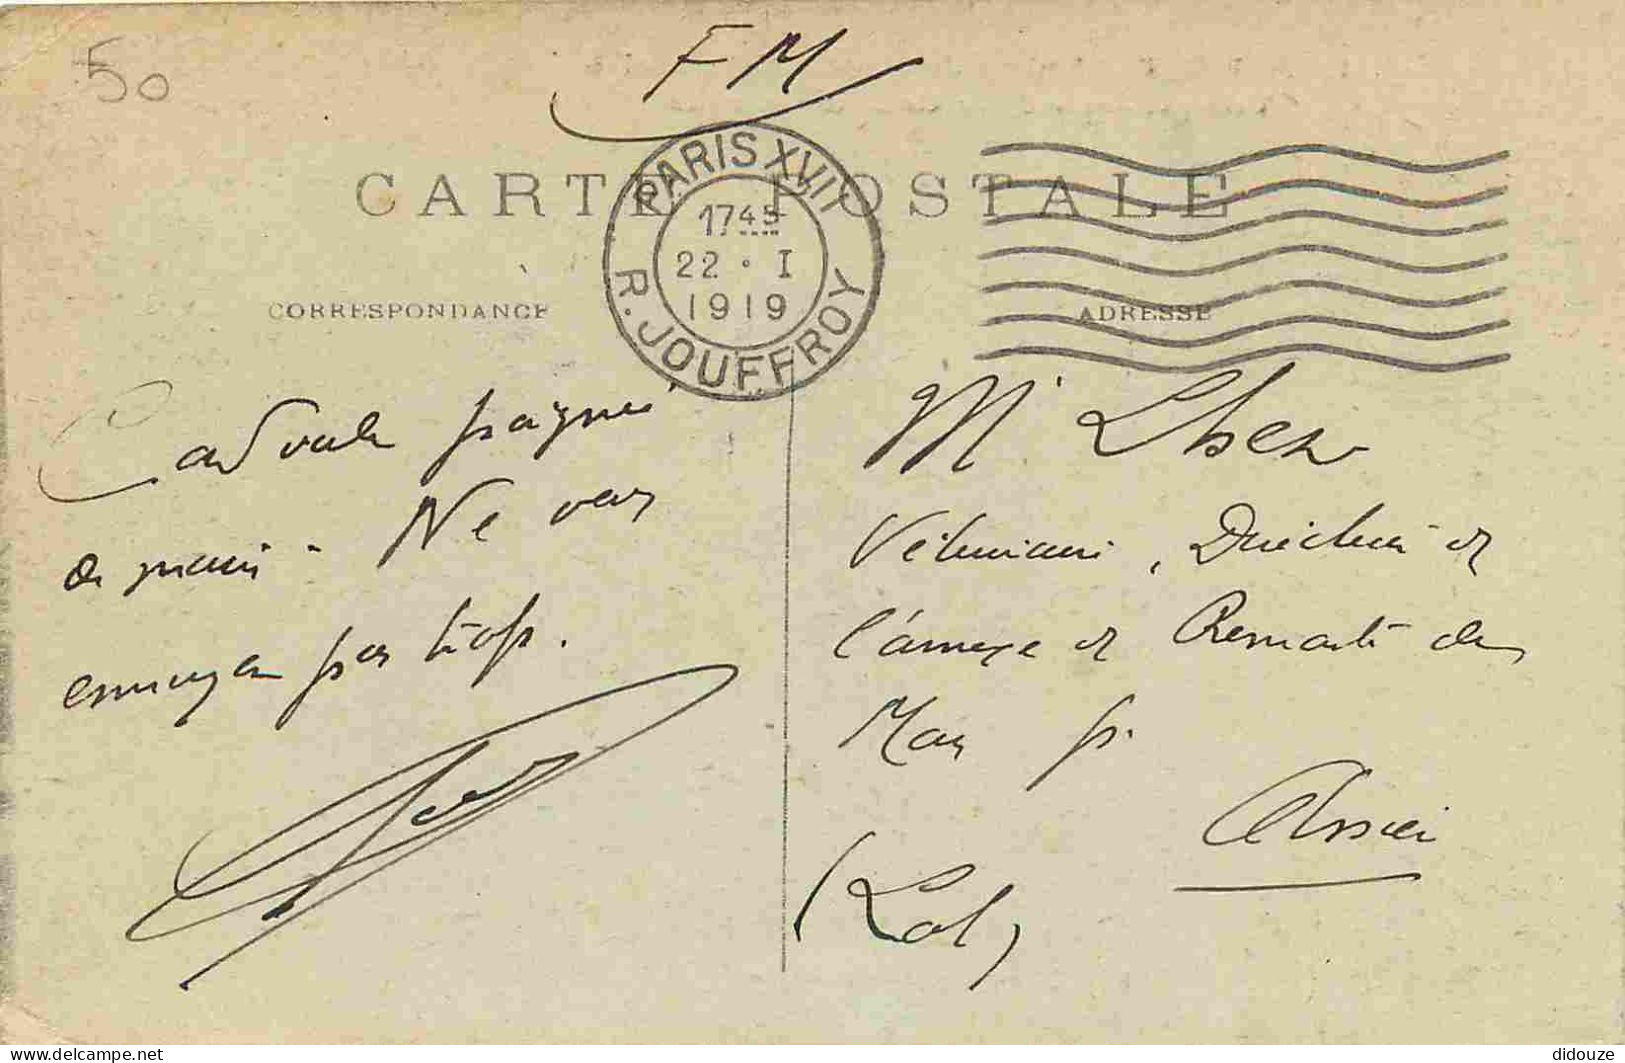 50
FM
CARTE POSTALE
PARIS XVII
17 45
22 · I
1919
R. JOUFFROY
CORRESPONDANCE
ADRESSE
Cordiale poignée
de main. Ne vous
ennuyez pas trop.
Mr Lhez
Vétérinaire, Directeur de
l'annexe de Remonte du
Mas pr.
Assier
(Lot)
www.delcampe.net
didouze